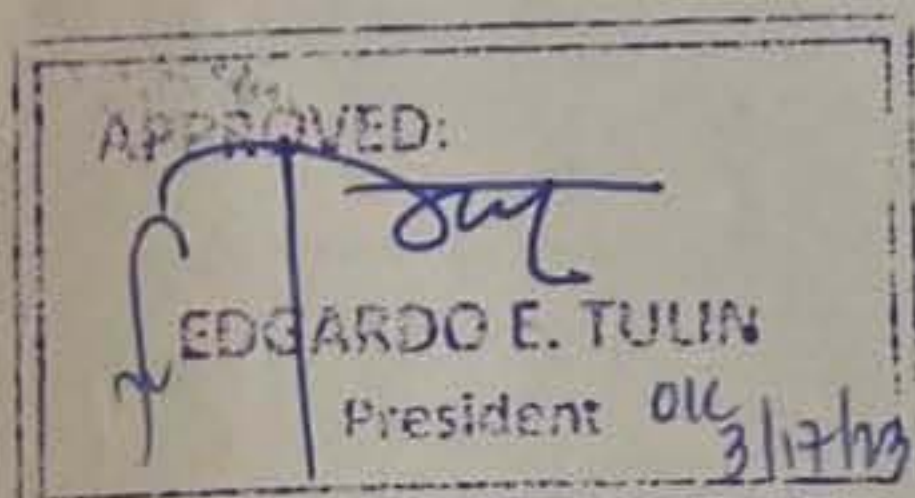 APPROVED:
EDGARDO E. TULIN
President OIC
3/17/23